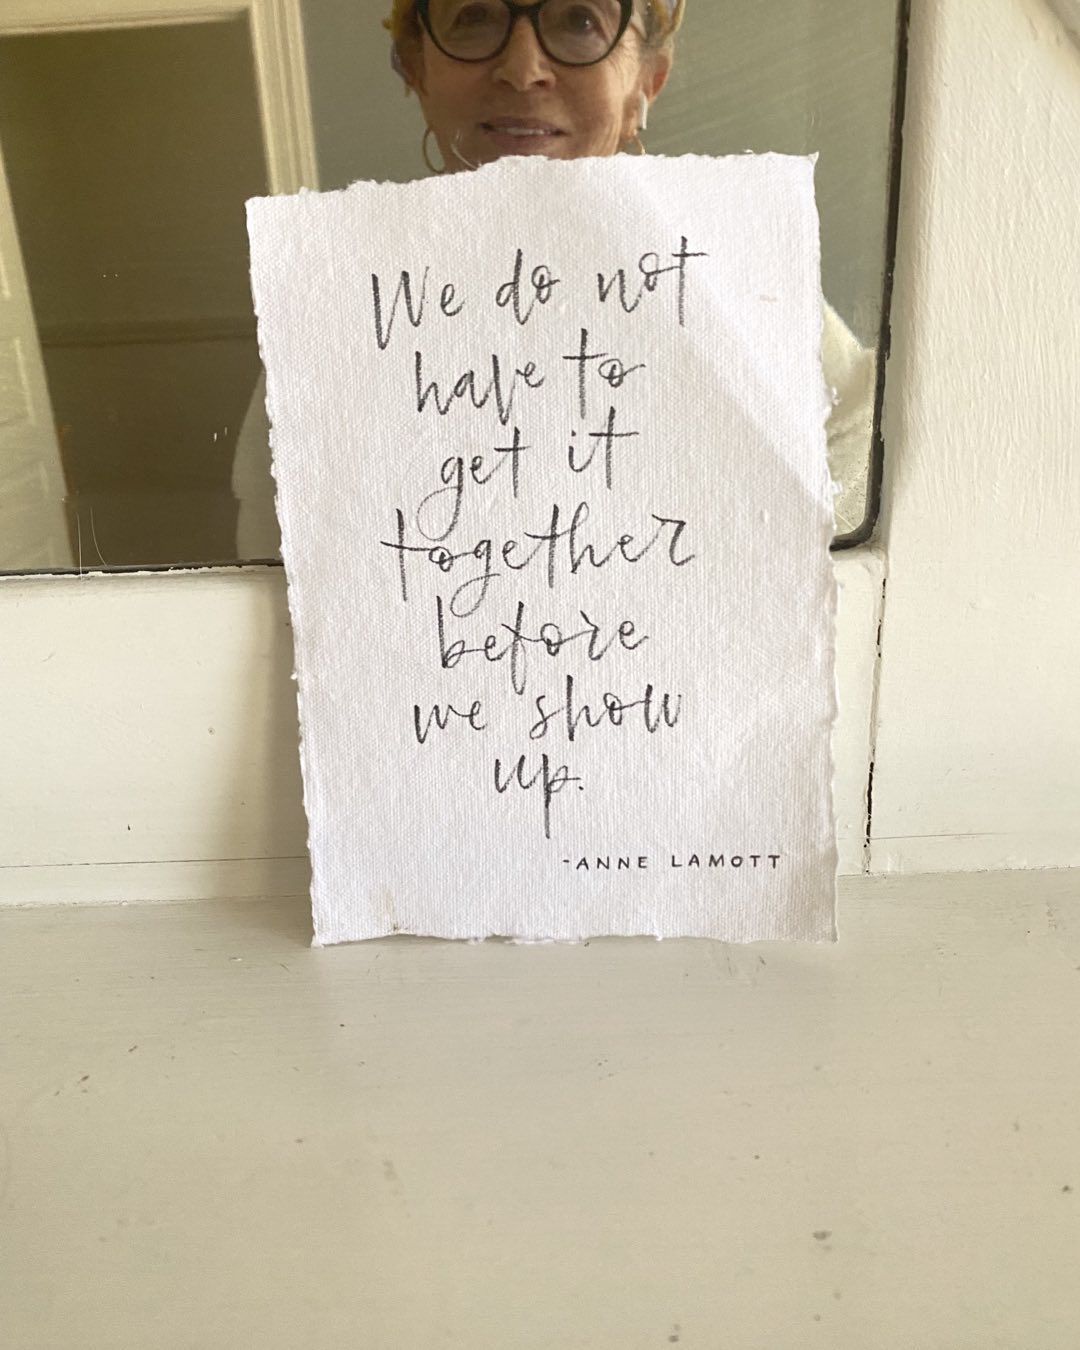 We do not
have to
get it
together
before
we show
up.
-ANNE LAMOTT